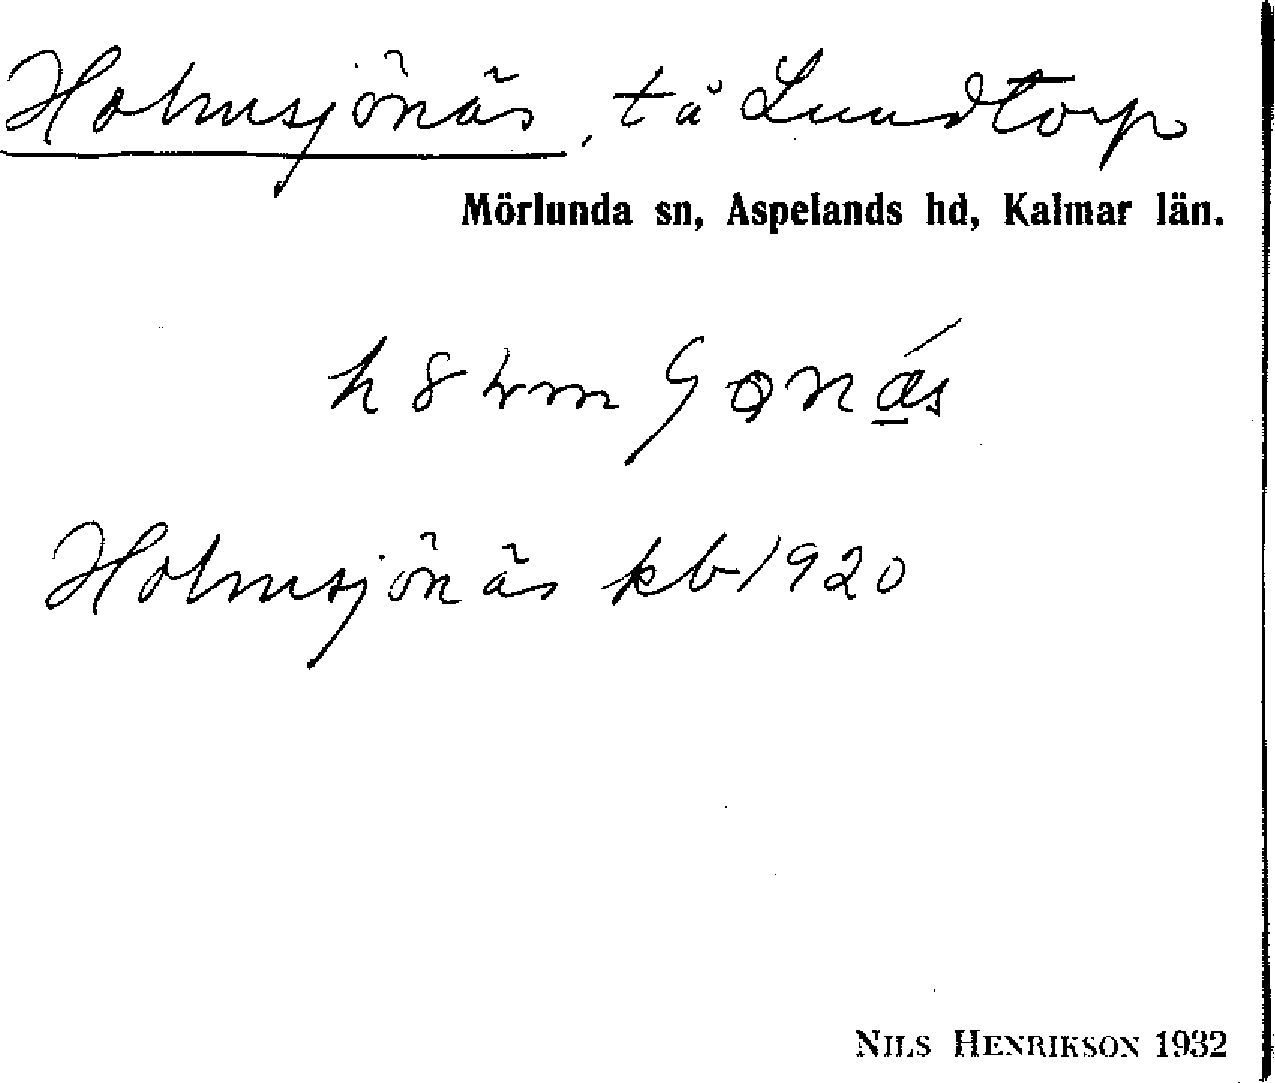 Holmsjönäs, tå Lundtorp
Mörlunda sn, Aspelands hd, Kalmar län.
Holmsjönäs kb 1920
NILS HENRIKSON 1932